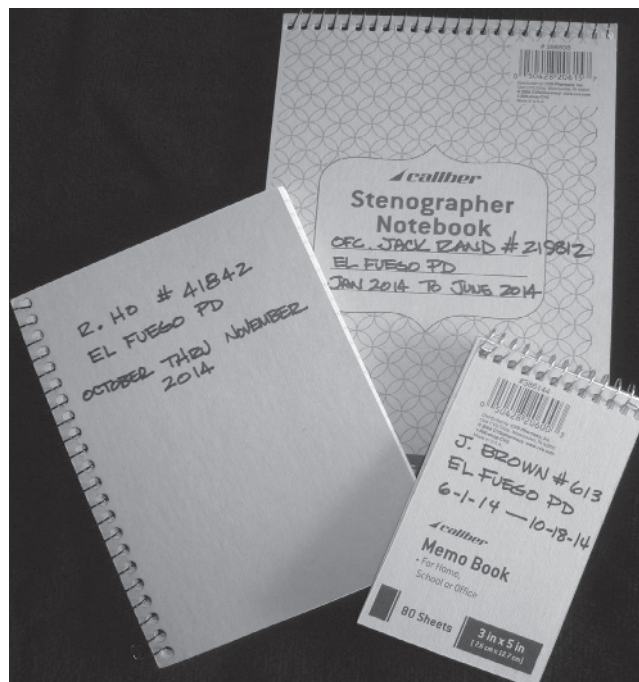 # 386938
0 50428 20615 7
caliber
Stenographer
Notebook
OFC. JACK RAND # 219812
EL FUEGO PD
JAN 2014 TO JUNE 2014
R. HO # 41842
EL FUEGO PD
OCTOBER THRU NOVEMBER
2014
#386144
0 50428 20600 3
J. BROWN # 613
EL FUEGO PD
6-1-14 — 10-18-14
caliber
Memo Book
• For Home,
School or Office
80 Sheets
3 in x 5 in
[7.6 cm x 12.7 cm]